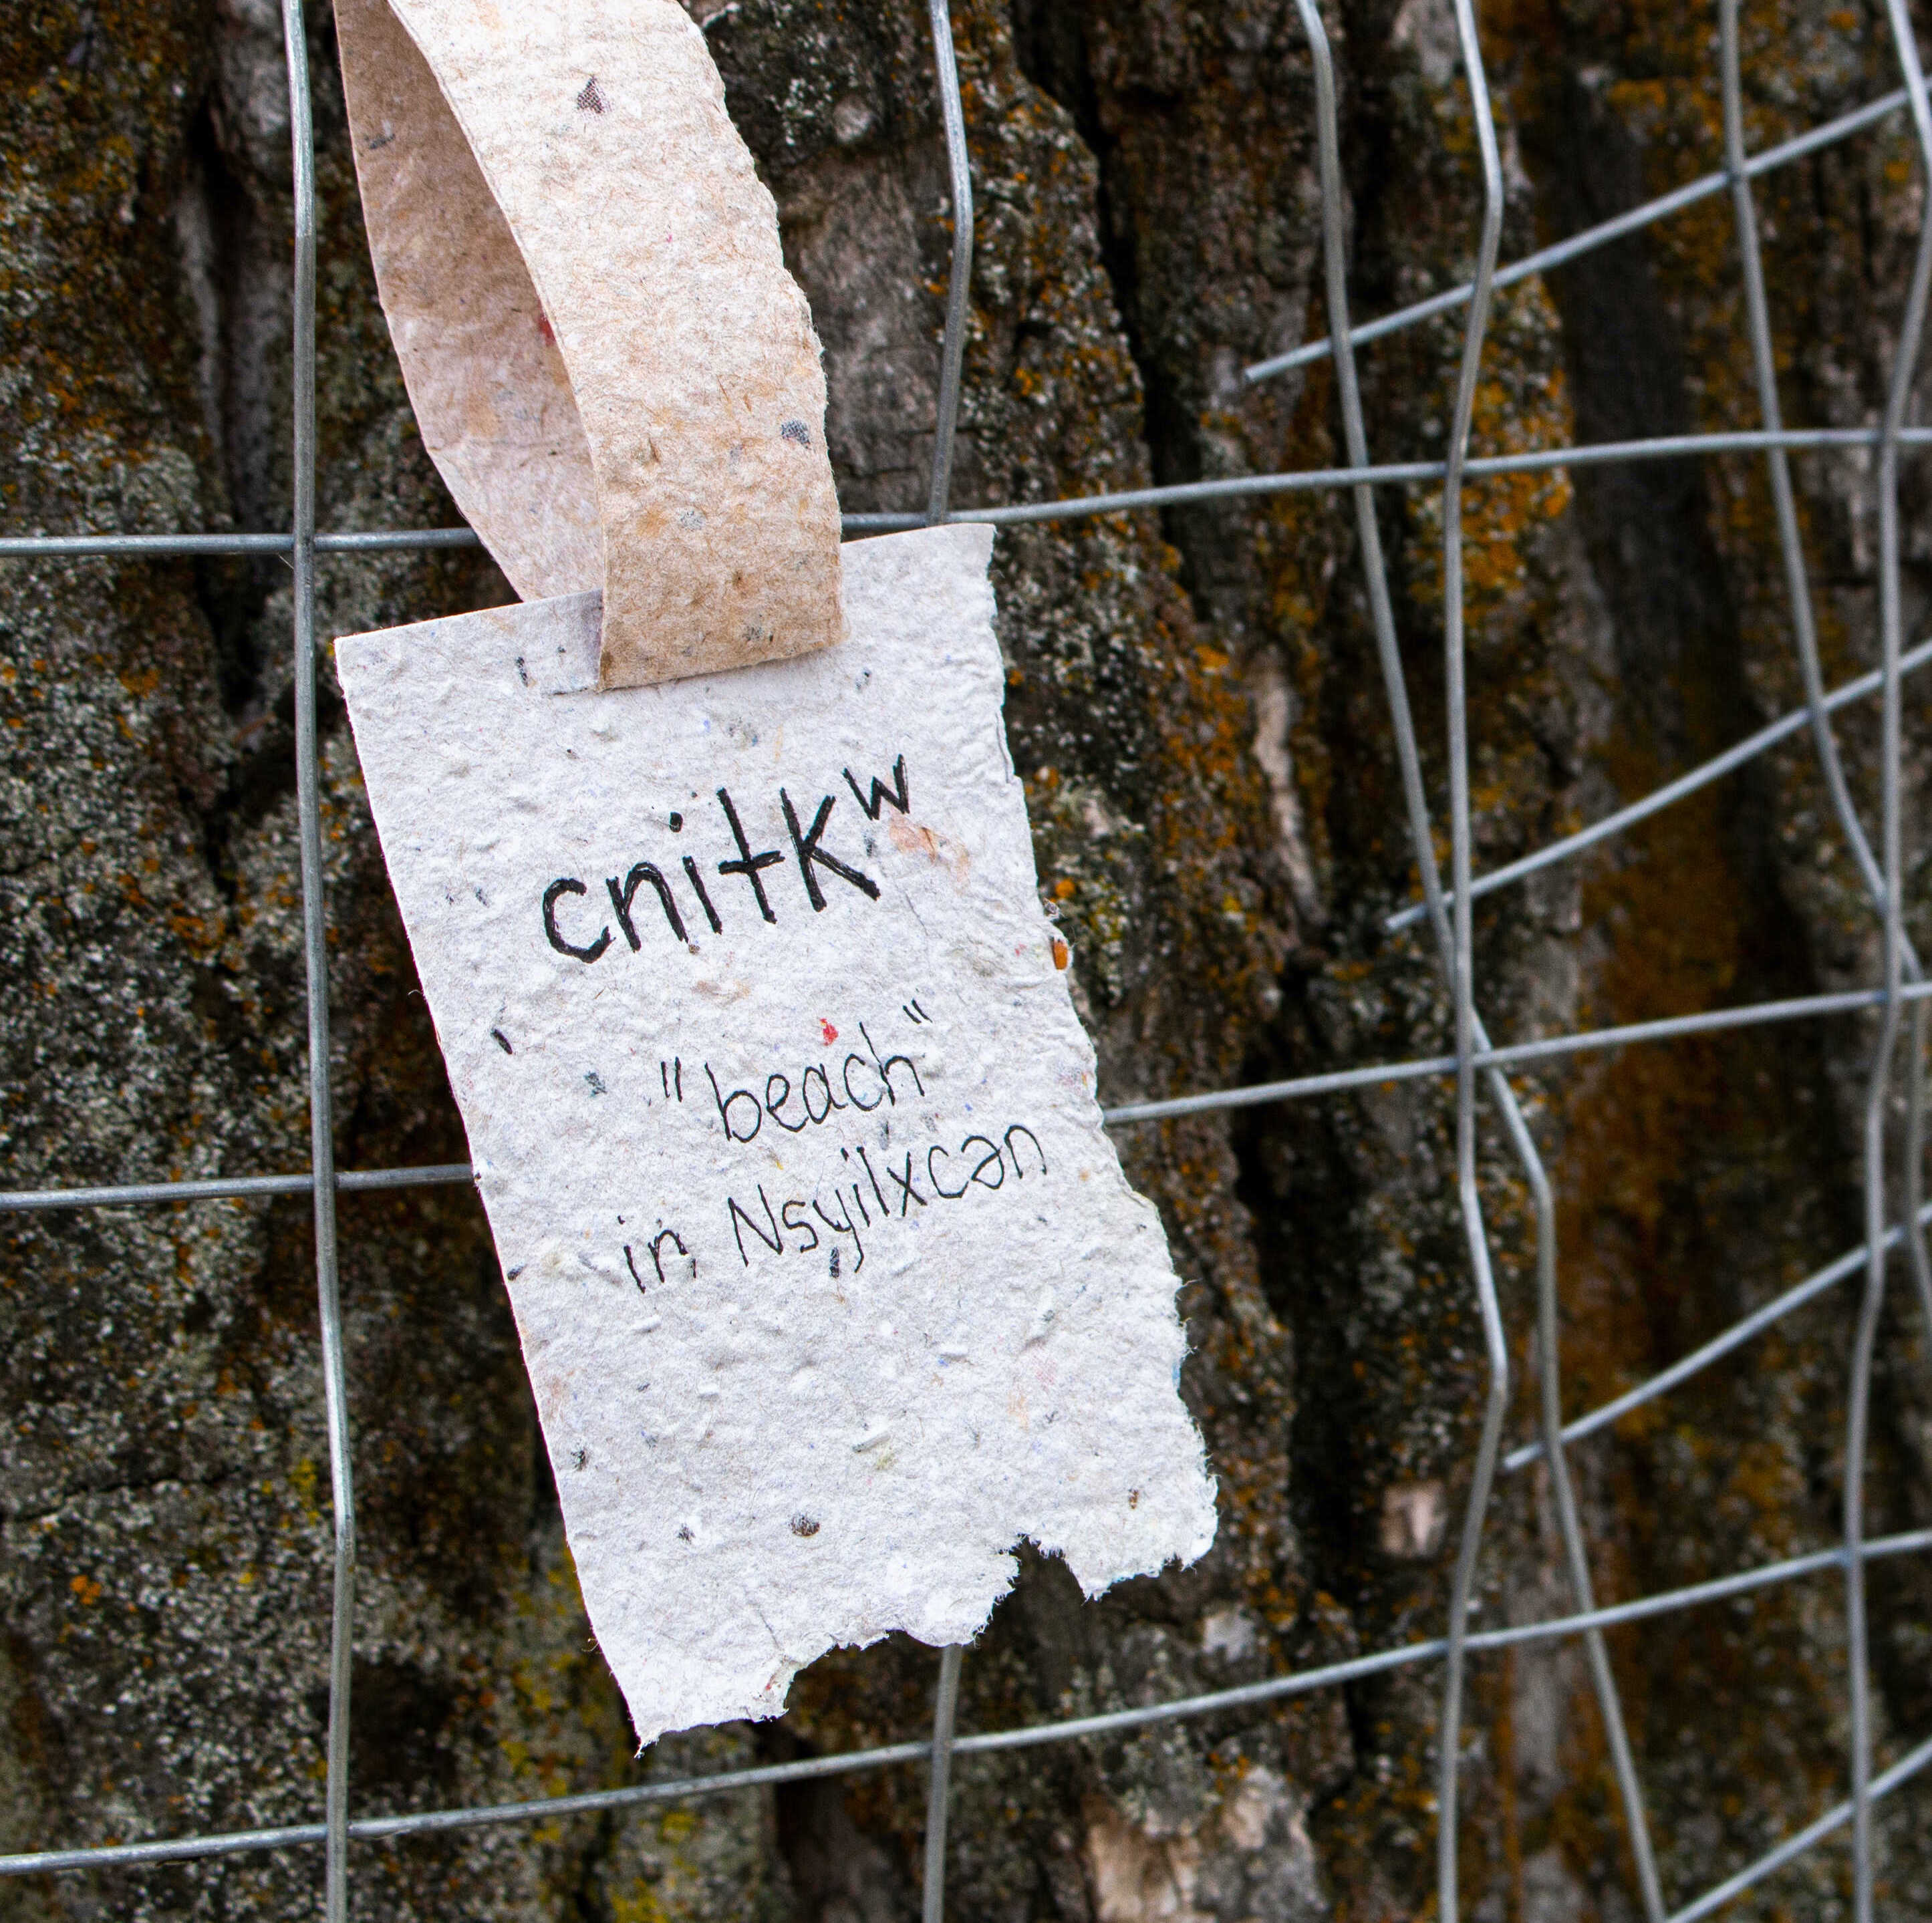 cnitkʷ
"beach"
in Nsyilxcən